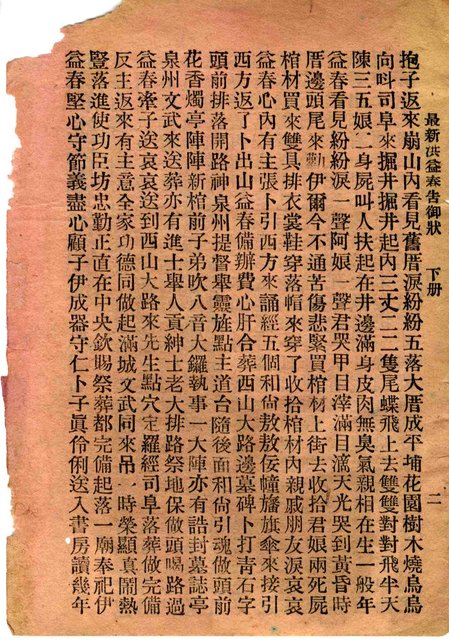 最新洪益春告御狀　下册　二
抱子返來崩山內看見舊厝淚紛紛五落大厝成平埔花園樹木燒鳥鳥
向呌司阜來掘井掘井起內三丈二二隻尾蝶飛上去雙雙對對飛半天
陳三五娘二身屍叫人扶起在井邊滿身皮肉無臭氣親相在生一般年
益春看見紛紛淚一聲阿娘一聲君哭甲目滓滿目滴天光哭到黃昏時
厝邊頭尾來勸伊爾今不通苦傷悲緊買棺材上街去收拾君娘兩死屍
棺材買來雙具排衣裳鞋穿落帽來穿了收拾棺材內親戚朋友淚哀哀
益春心內有主張卜引西方來誦經五個和尙敖敖佞幢旛旗傘來接引
西方返了卜出山益春備辦費心肝合葬西山大路邊墓碑卜打靑石字
頭前排落開路神泉州提督舉靈旌點主道台隨後面和尙引魂做頭前
花香燭亭陣陣新棺前子弟吹八音大鑼執事一大陣亦有誥封墓誌亭
泉州文武來送葬亦有進士舉人貢紳士老大排路祭地保做頭喝路過
益春牽子送哀哀送到西山大路來先生點穴定羅經司阜落葬做完備
反主返來有主意全家功德同做起滿城文武同來吊一時榮顯真鬧熱
豎落進使功臣坊忠勤正直在中央欽賜祭葬都完備起落一廟奉祀伊
益春堅心守節義盡心顧子伊成器守仁卜子眞伶俐送入書房讀幾年